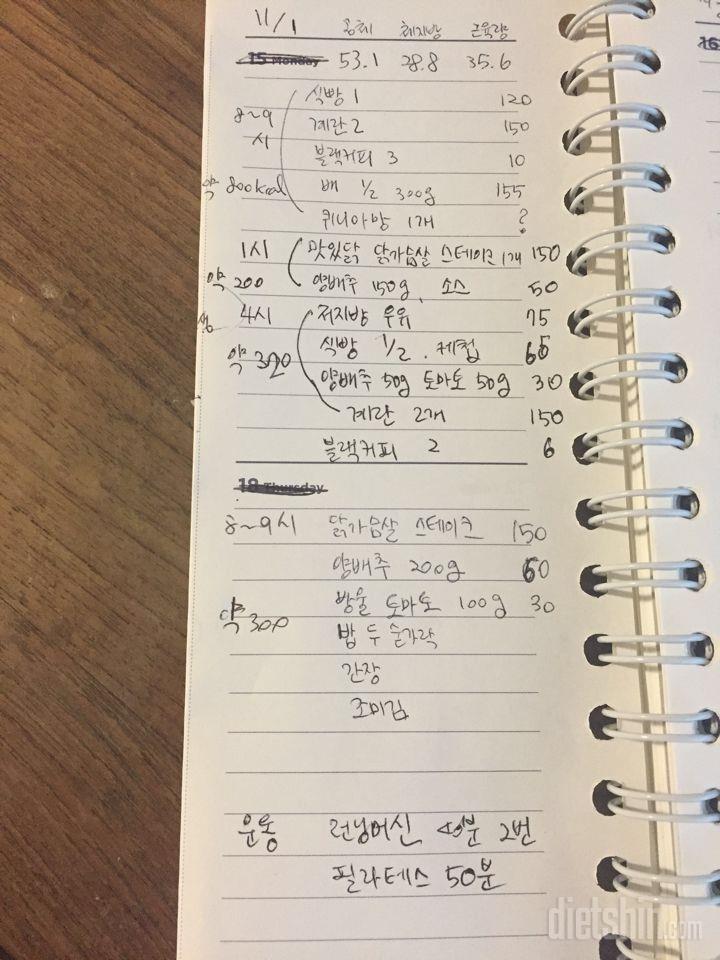 11/1 공체 체지방 근육량
15 Monday 53.1 28.8 35.6
식빵 1 120
8~9시 계란 2 150
블랙커피 3 10
약 800kcal 배 1/2 300g 155
퀴니아망 1개 ?
1시 맛있닭 닭가슴살 스테이크 1개 150
약 200 양배추 150g, 소스 50
4시 저지방 우유 75
약 320 식빵 1/2, 케첩
양배추 50g 토마토 50g 30
계란 2개 150
블랙커피 2 6
18 Thursday
8~9시 닭가슴살 스테이크 150
양배추 200g 60
약 300 방울 토마토 100g 30
밥 두 숟가락
간장
조미김
운동 런닝머신 40분 2번
필라테스 50분
dietshin.com